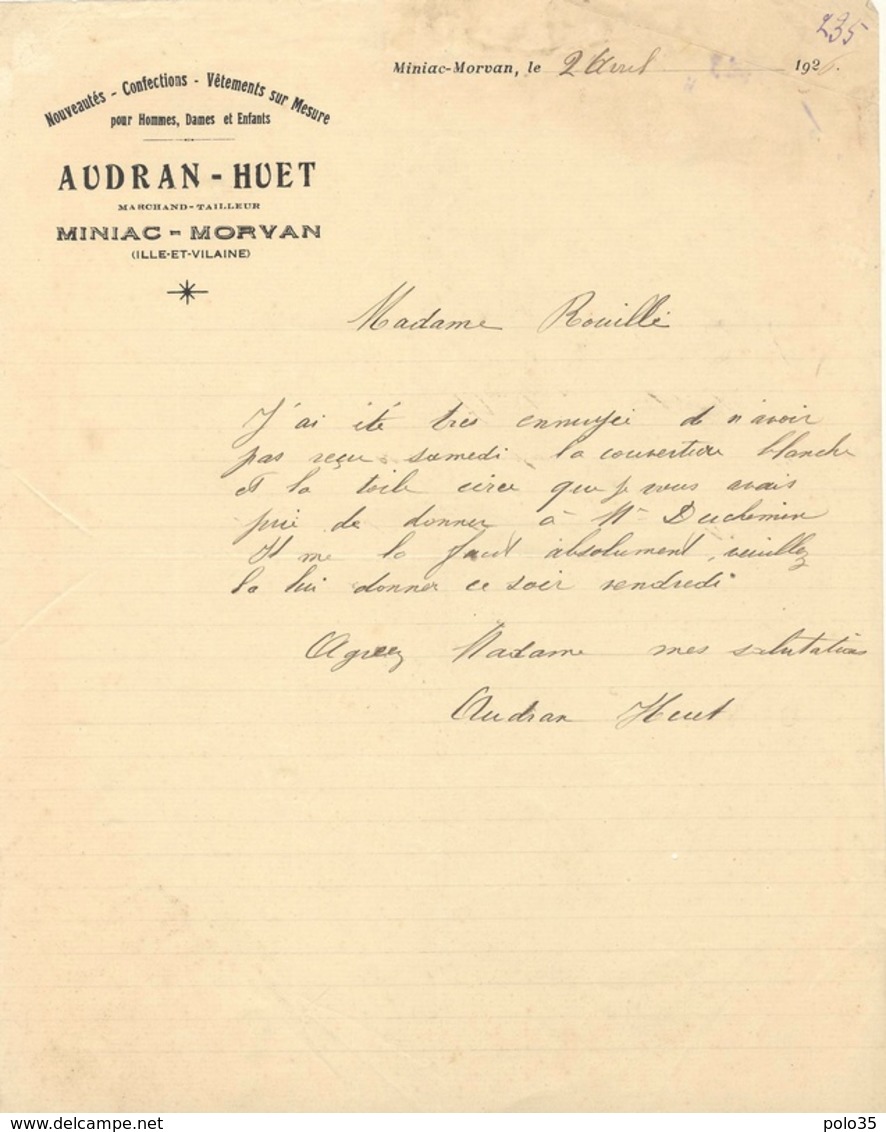 235
Miniac-Morvan, le 2 Avril 1926.
Nouveautés - Confections - Vêtements sur Mesure
pour Hommes, Dames et Enfants
AUDRAN - HUET
MARCHAND-TAILLEUR
MINIAC - MORVAN
(ILLE-ET-VILAINE)
Madame Rouillé
J'ai été tres ennuyée de n'avoir
pas reçu samedi la couverture blanche
et la toile ciree que je vous avais
prié de donner à Mr Duchemin
Il me la faut absolument, veuillez
la lui donner ce soir vendredi
Agreez Madame mes salutations
Audran Huet
www.delcampe.net
polo35